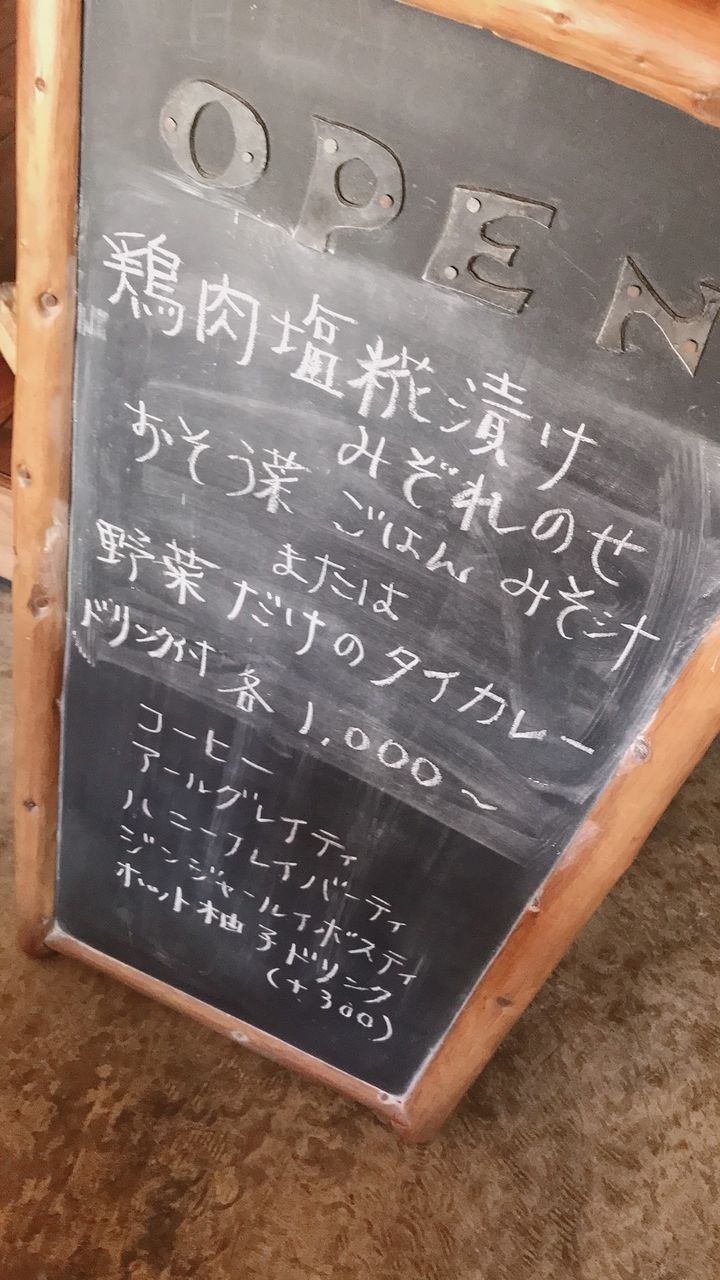 OPEN
鶏肉塩糀漬け
みぞれのせ
おそう菜 ごはん みそ汁
または
野菜だけのタイカレー
ドリンク付 各 1,000~
コーヒー
アールグレイティ
ハニーフレイバーティ
ジンジャールイボスティ
ホット柚子ドリンク
(+300)